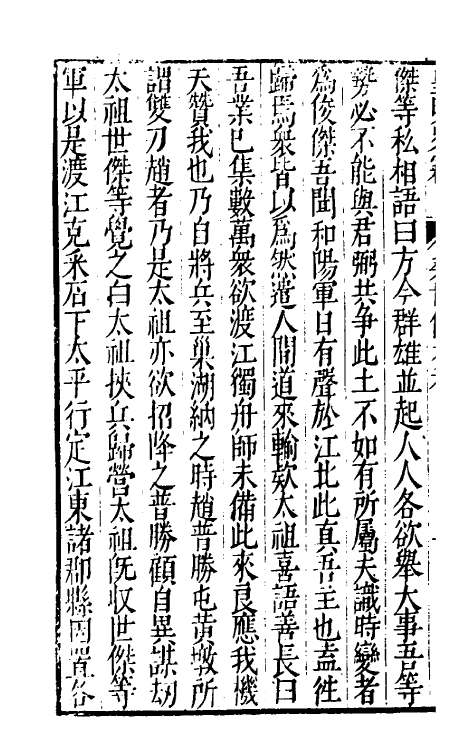 傑等私相語曰方今群雄並起人人各欲舉大事吾等
勢必不能與君弼共争此土不如有所屬夫識時變者
為俊傑吾聞和陽軍日有聲於江北此真吾主也盍徃
歸焉衆皆以為然遣人間道來輸欵太祖喜語善長曰
吾業已集數萬衆欲渡江獨舟師未備此來良應我機
天贊我也乃自將兵至巢湖納之時趙普勝屯黃墩所
謂雙刀趙者乃是太祖亦欲招降之普勝顧自異謀刼
太祖世傑等覺之白太祖挾兵歸營太祖既収世傑等
軍以是渡江克采石下太平行定江東諸郡縣因置各